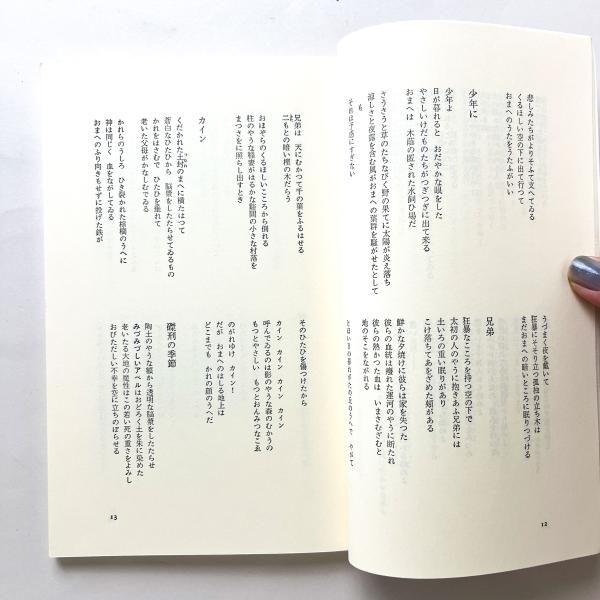 悲しみたちがよりそふて支へてゐる
くるほしい空の下に出て行つて
おまへのうたをうたふがいい
少年に
少年よ
日が暮れると おだやかな眼をした
やさしいけだものたちがつぎつぎに出て来る
おまへは 木蔭の匿された水飼ひ場だ
さうさうと草のたちなびく野の果てに太陽が炎え落ち
涼しさと夜露を含む風がおまへの葉群を騒がせたとして
も
それは予感にすぎない
うづまく夜を戴いて
狂暴にそそり立つ孤独の立ち木は
まだおまへの暗いところに眠りつづける
兄弟
狂暴なこころを持つ空の下で
太初の人のやうに抱きあふ兄弟には
土いろの重い眠りがあり
こけ落ちてあをざめた頬がある
鮮かな夕焼けに彼らは家を失つた
彼らの血統は曝れた運河のやうに断たれ
彼らの熱かつた血は いまさむざむと
地のそこをながれる
12
兄弟は 天にむかつて千の葉をふるはせる
二もとの暗い樫の木だらう
おほぞらのくるほしいこころから倒れる
柱のやうな稲妻がはるかな谿間の小さな村落を
まつさをに照らし出すとき
カイン
くだかれた土封のまへに横たはつて
蒼白なひたひから 脳漿をしたたらせてゐるもの
かれをはさむで ひたひを垂れて
老いた父母がかなしむでゐる
かれらのうしろ ひき裂かれた棕櫚のうへに
神は同じく 血をながしてゐる
おまへのふり向きもせずに投げた鉄が
そのひたひを傷つけたから
カイン カイン カイン カイン
呼んでゐるのは影のやうな森のむかうの
もつとやさしい もつとおんみつなこゑ
のがれゆけ カイン！
だが おまへのはしる地上は
どこまでも かれの顔のうへだ
磔刑の季節
陶土のやうな額から透明な脳漿をしたたらせ
みづみづしいアベルはおどろく土を朱に染めた
老いたる大地の魔性はこの若い死の重さをよみし
おびただしい不幸を空に立ちのぼらせる
13